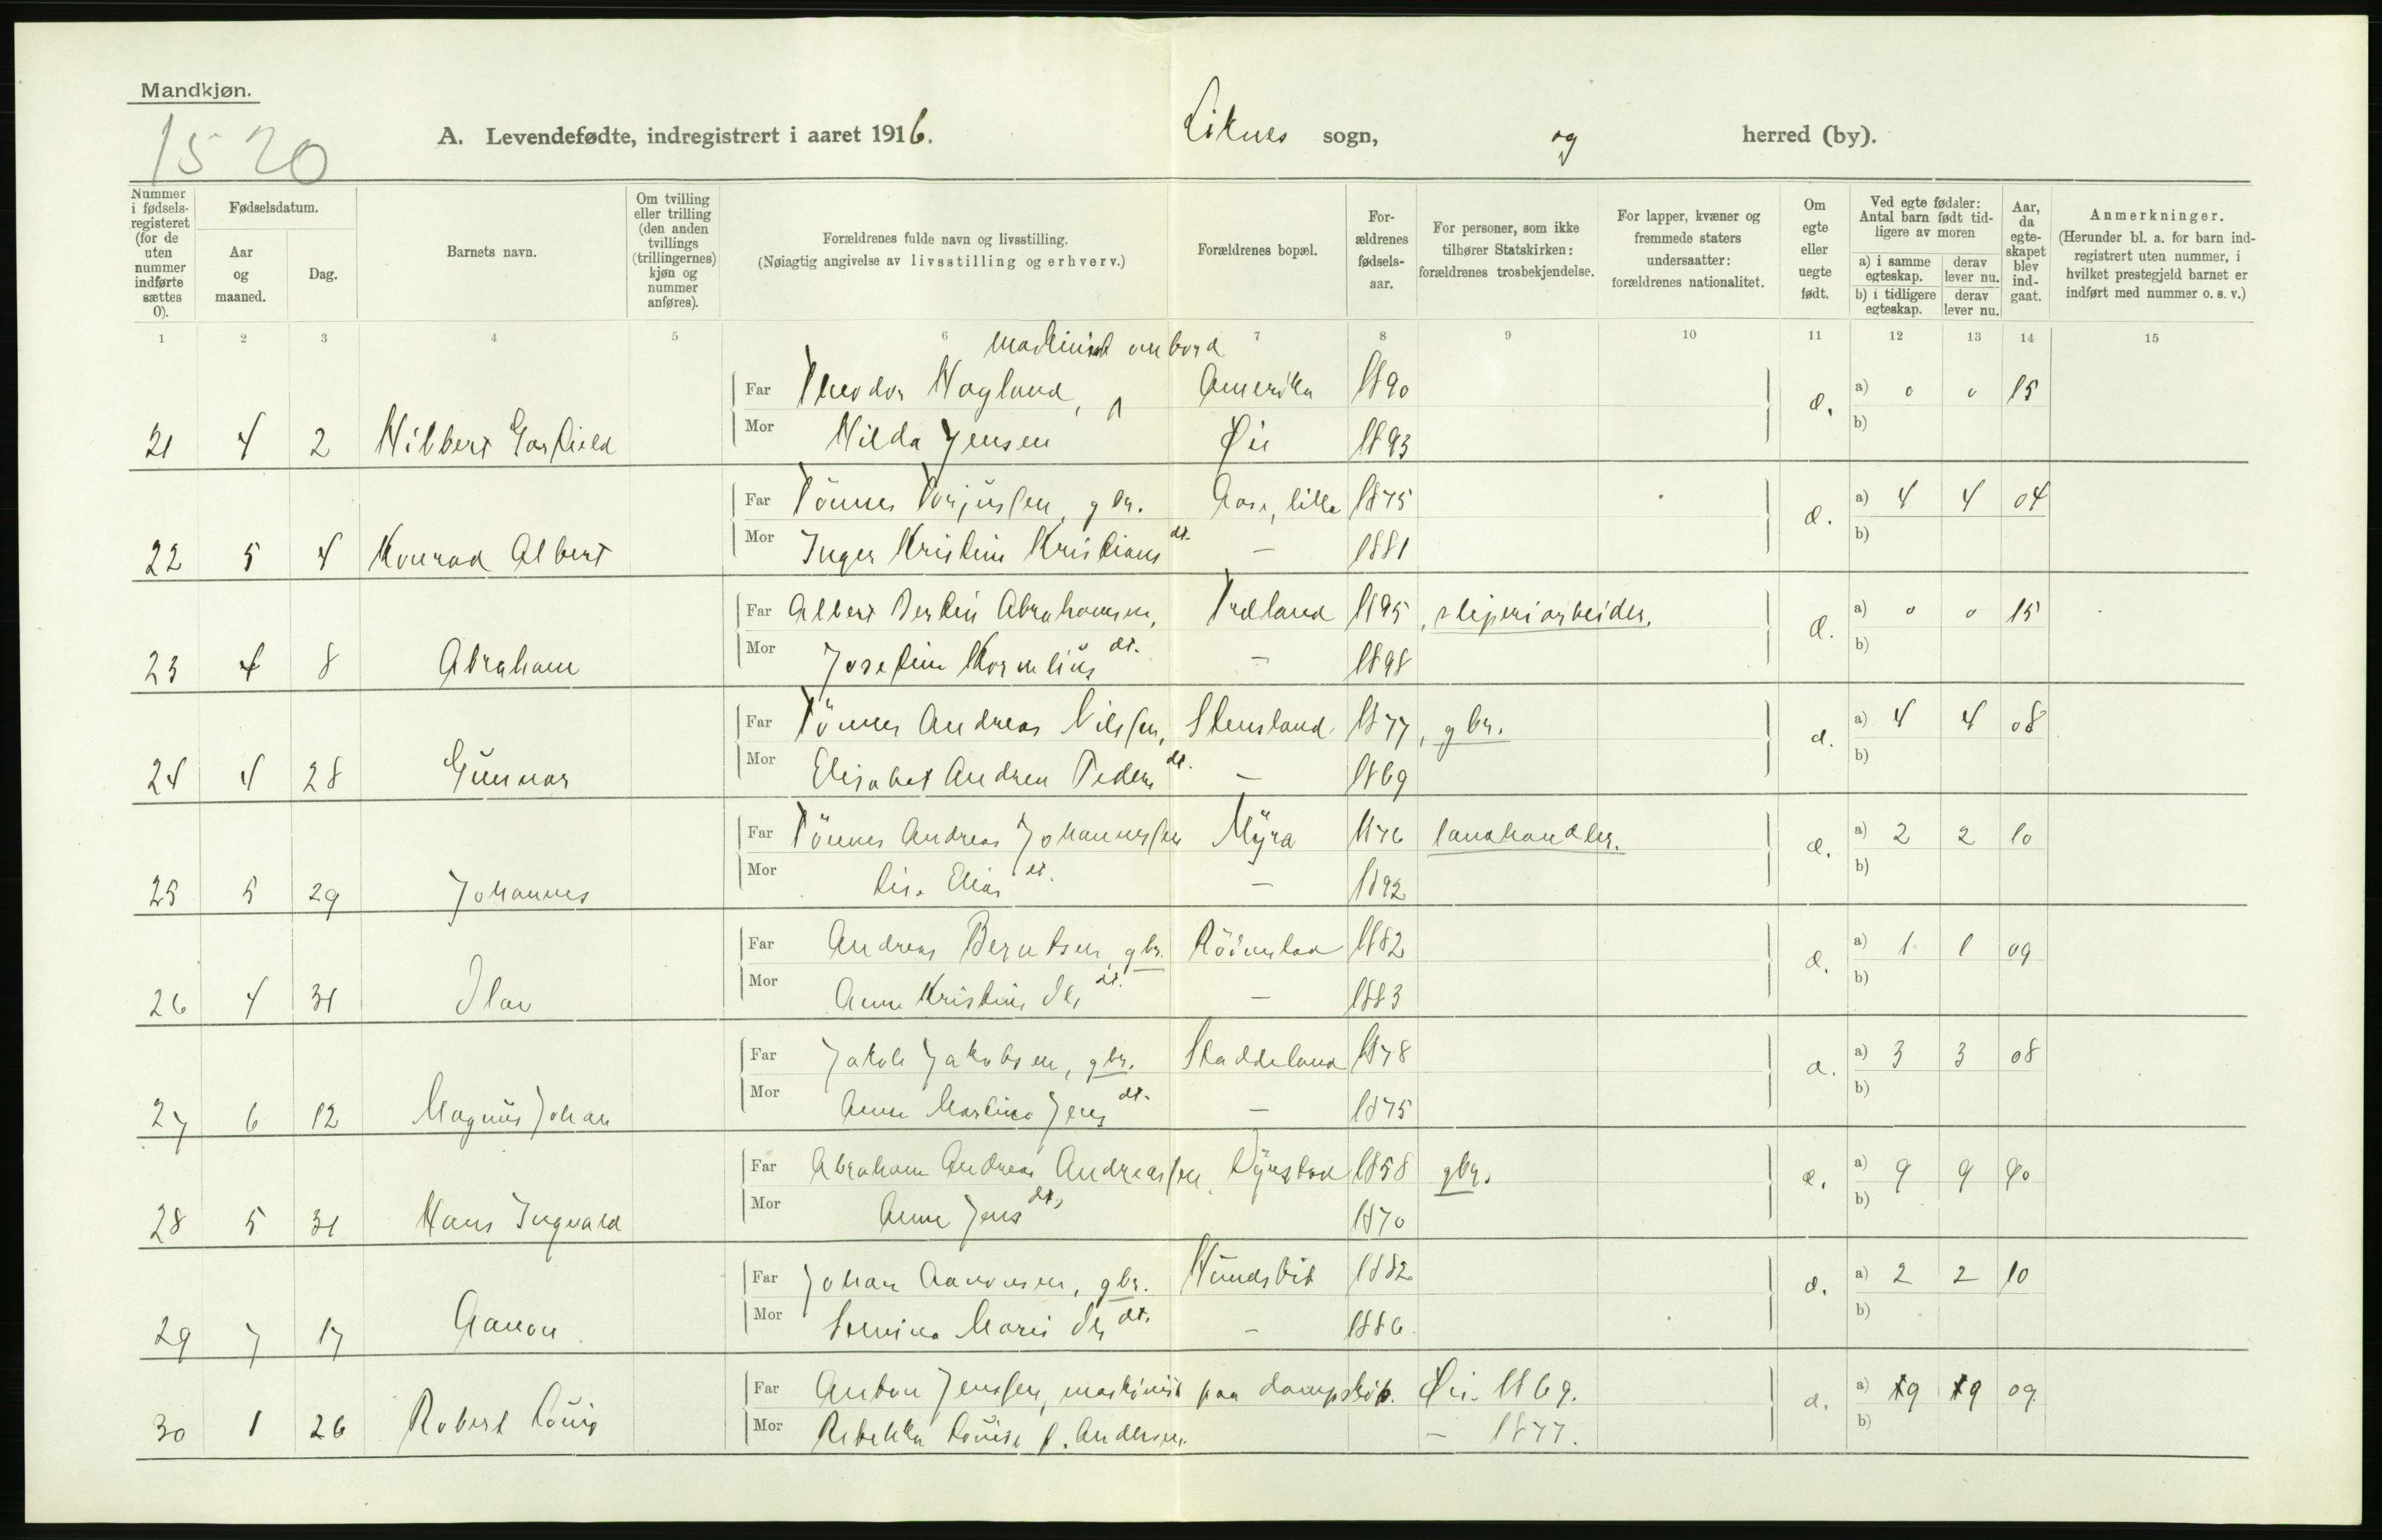 Mandkjøn.
1520
A. Levendefødte, indregistrert i aaret 1916. Liknes sogn, og herred (by).
Nummer i fødselsregisteret (for de uten nummer indførte sættes 0).
Fødselsdatum.
Aar og maaned.
Dag.
Barnets navn.
Om tvilling eller trilling (den anden tvillings (trillingernes) kjøn og nummer anføres).
Forældrenes fulde navn og livsstilling.
(Nøiagtig angivelse av livsstilling og erhverv.)
Forældrenes bopæl.
Forældrenes fødselsaar.
For personer, som ikke tilhører Statskirken: forældrenes trosbekjendelse.
For lapper, kvæner og fremmede staters undersaatter: forældrenes nationalitet.
Om egte eller uegte født.
Ved egte fødsler: Antal barn født tidligere av moren
a) i samme egteskap. derav lever nu.
b) i tidligere egteskap. derav lever nu.
Aar, da egteskapet blev indgaat.
Anmerkninger.
(Herunder bl. a. for barn indregistrert uten nummer, i hvilket prestegjeld barnet er indført med nummer o. s. v.)
1 2 3 4 5 6 7 8 9 10 11 12 13 14 15
maskinist ombord
Far Theodor Hagland, Amerika 1890 a) 0 0 15
21 4 2 Hilbert Garfield Mor Hilda Jensen Øie 1893 b)
Far Tönnes Torjussen, gbr. Aase, lille 1875 a) 4 4 04
22 5 4 Konrad Albert Mor Inger Kristine Kristians dt. — 1881 b)
Far Albert Bertin Abrahamsen, Træland 1895, sliperiarbeider. a) 0 0 15
23 4 8 Abraham Mor Josefine Kornelius dt. — 1898 b)
Far Tönnes Andreas Nilssen, Stensland 1877, gbr. a) 4 4 08
24 4 28 Gunnar Mor Elisabet Andrea Peders dt. — 1869 b)
Far Tönnes Andreas Johannessen Myra 1876 landhandler. a) 2 2 10
25 5 29 Johannes Mor Lise Elias dt. — 1892 b)
Far Andreas Berntsen, gbr. 1882 a) 1 1 09
26 4 31 Olav Mor Anne Kristine Ols dt. — 1883 b)
Far Jakob Jakobsen, gbr. Staddeland 1878 a) 3 3 08
27 6 12 Magnus Johan Mor Anne Martine Jens dt. — 1875 b)
Far Abraham Andreas Andreassen, 1858 gbr. a) 9 9 90
28 5 31 Hans Ingvald Mor Anne Jens dt. 1870 b)
Far Johan Aanonsen, gbr. 1882 a) 2 2 10
29 7 17 Aanon Mor Marie Ols dt. — 1886 b)
Far Anton Jenssen, maskinist paa dampskib. Øie. 1869. a) 9 9 09
30 1 26 Robert Louis Mor Rebekka Louise f. Andersen. — 1877. b)